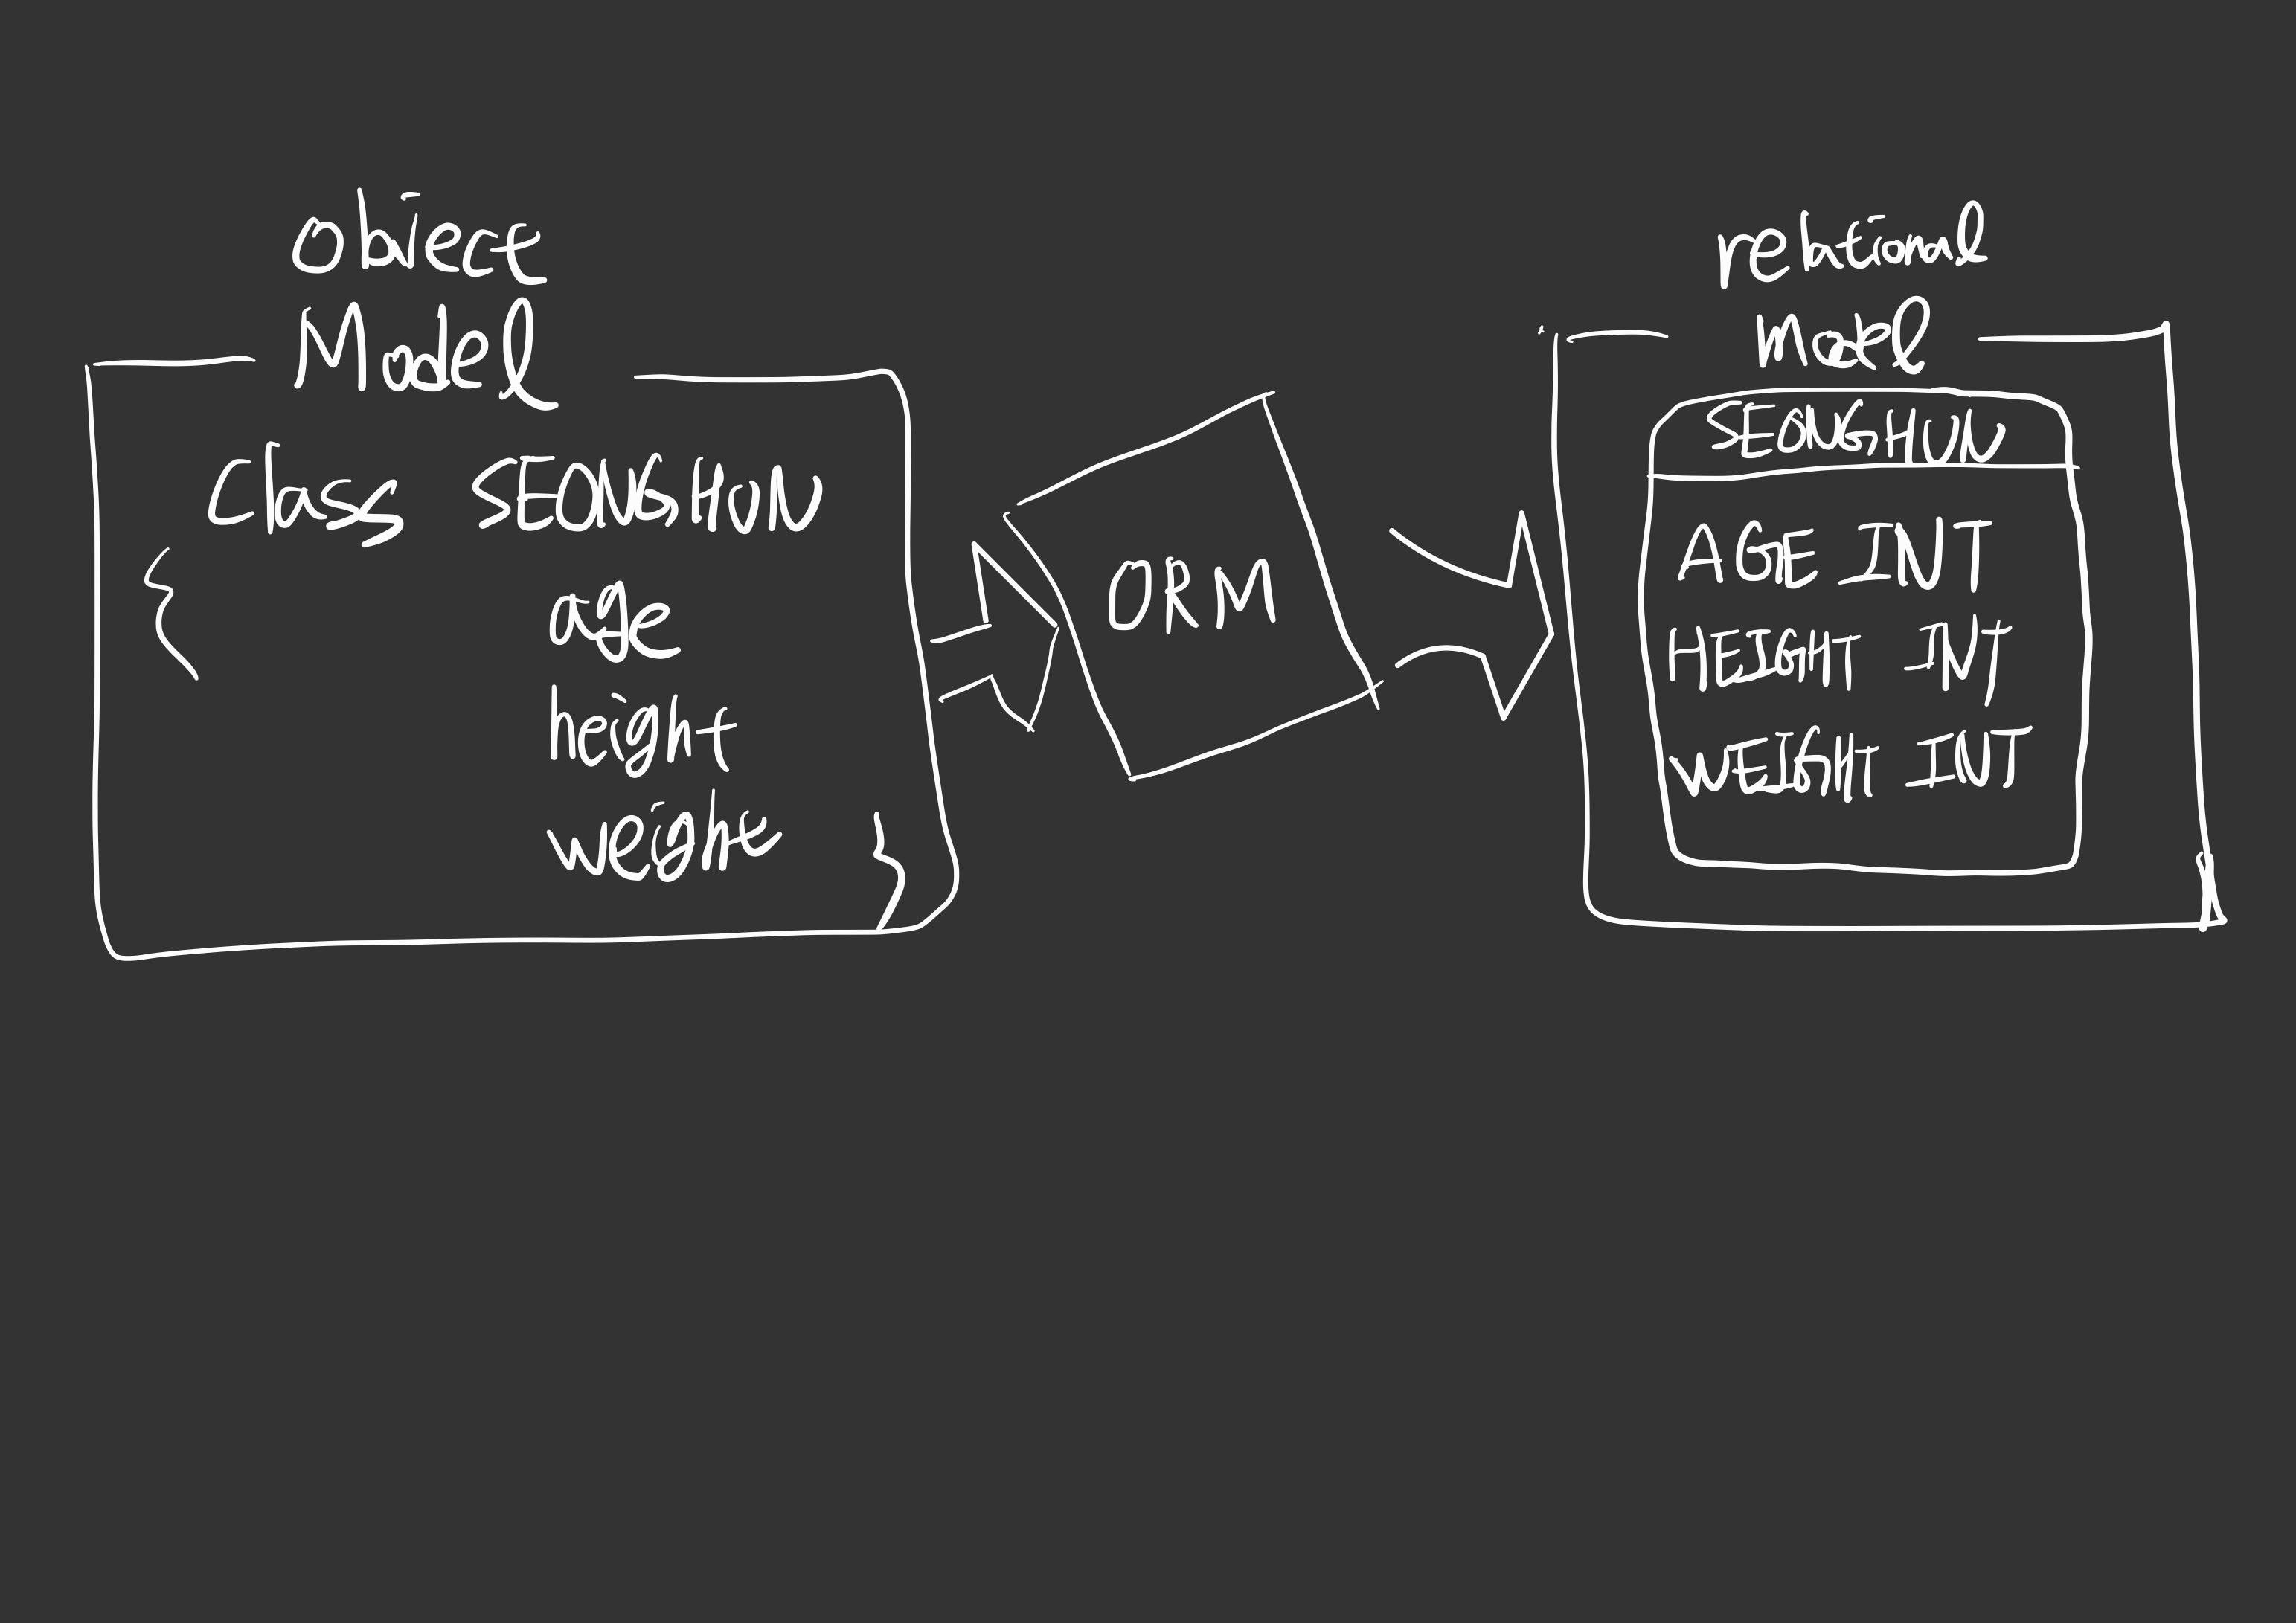 object
Model
Class SEONGHUN
age
height
weight
ORM
relational
model
SEONGHUN
AGE INT
HEIGHT INT
WEIGHT INT